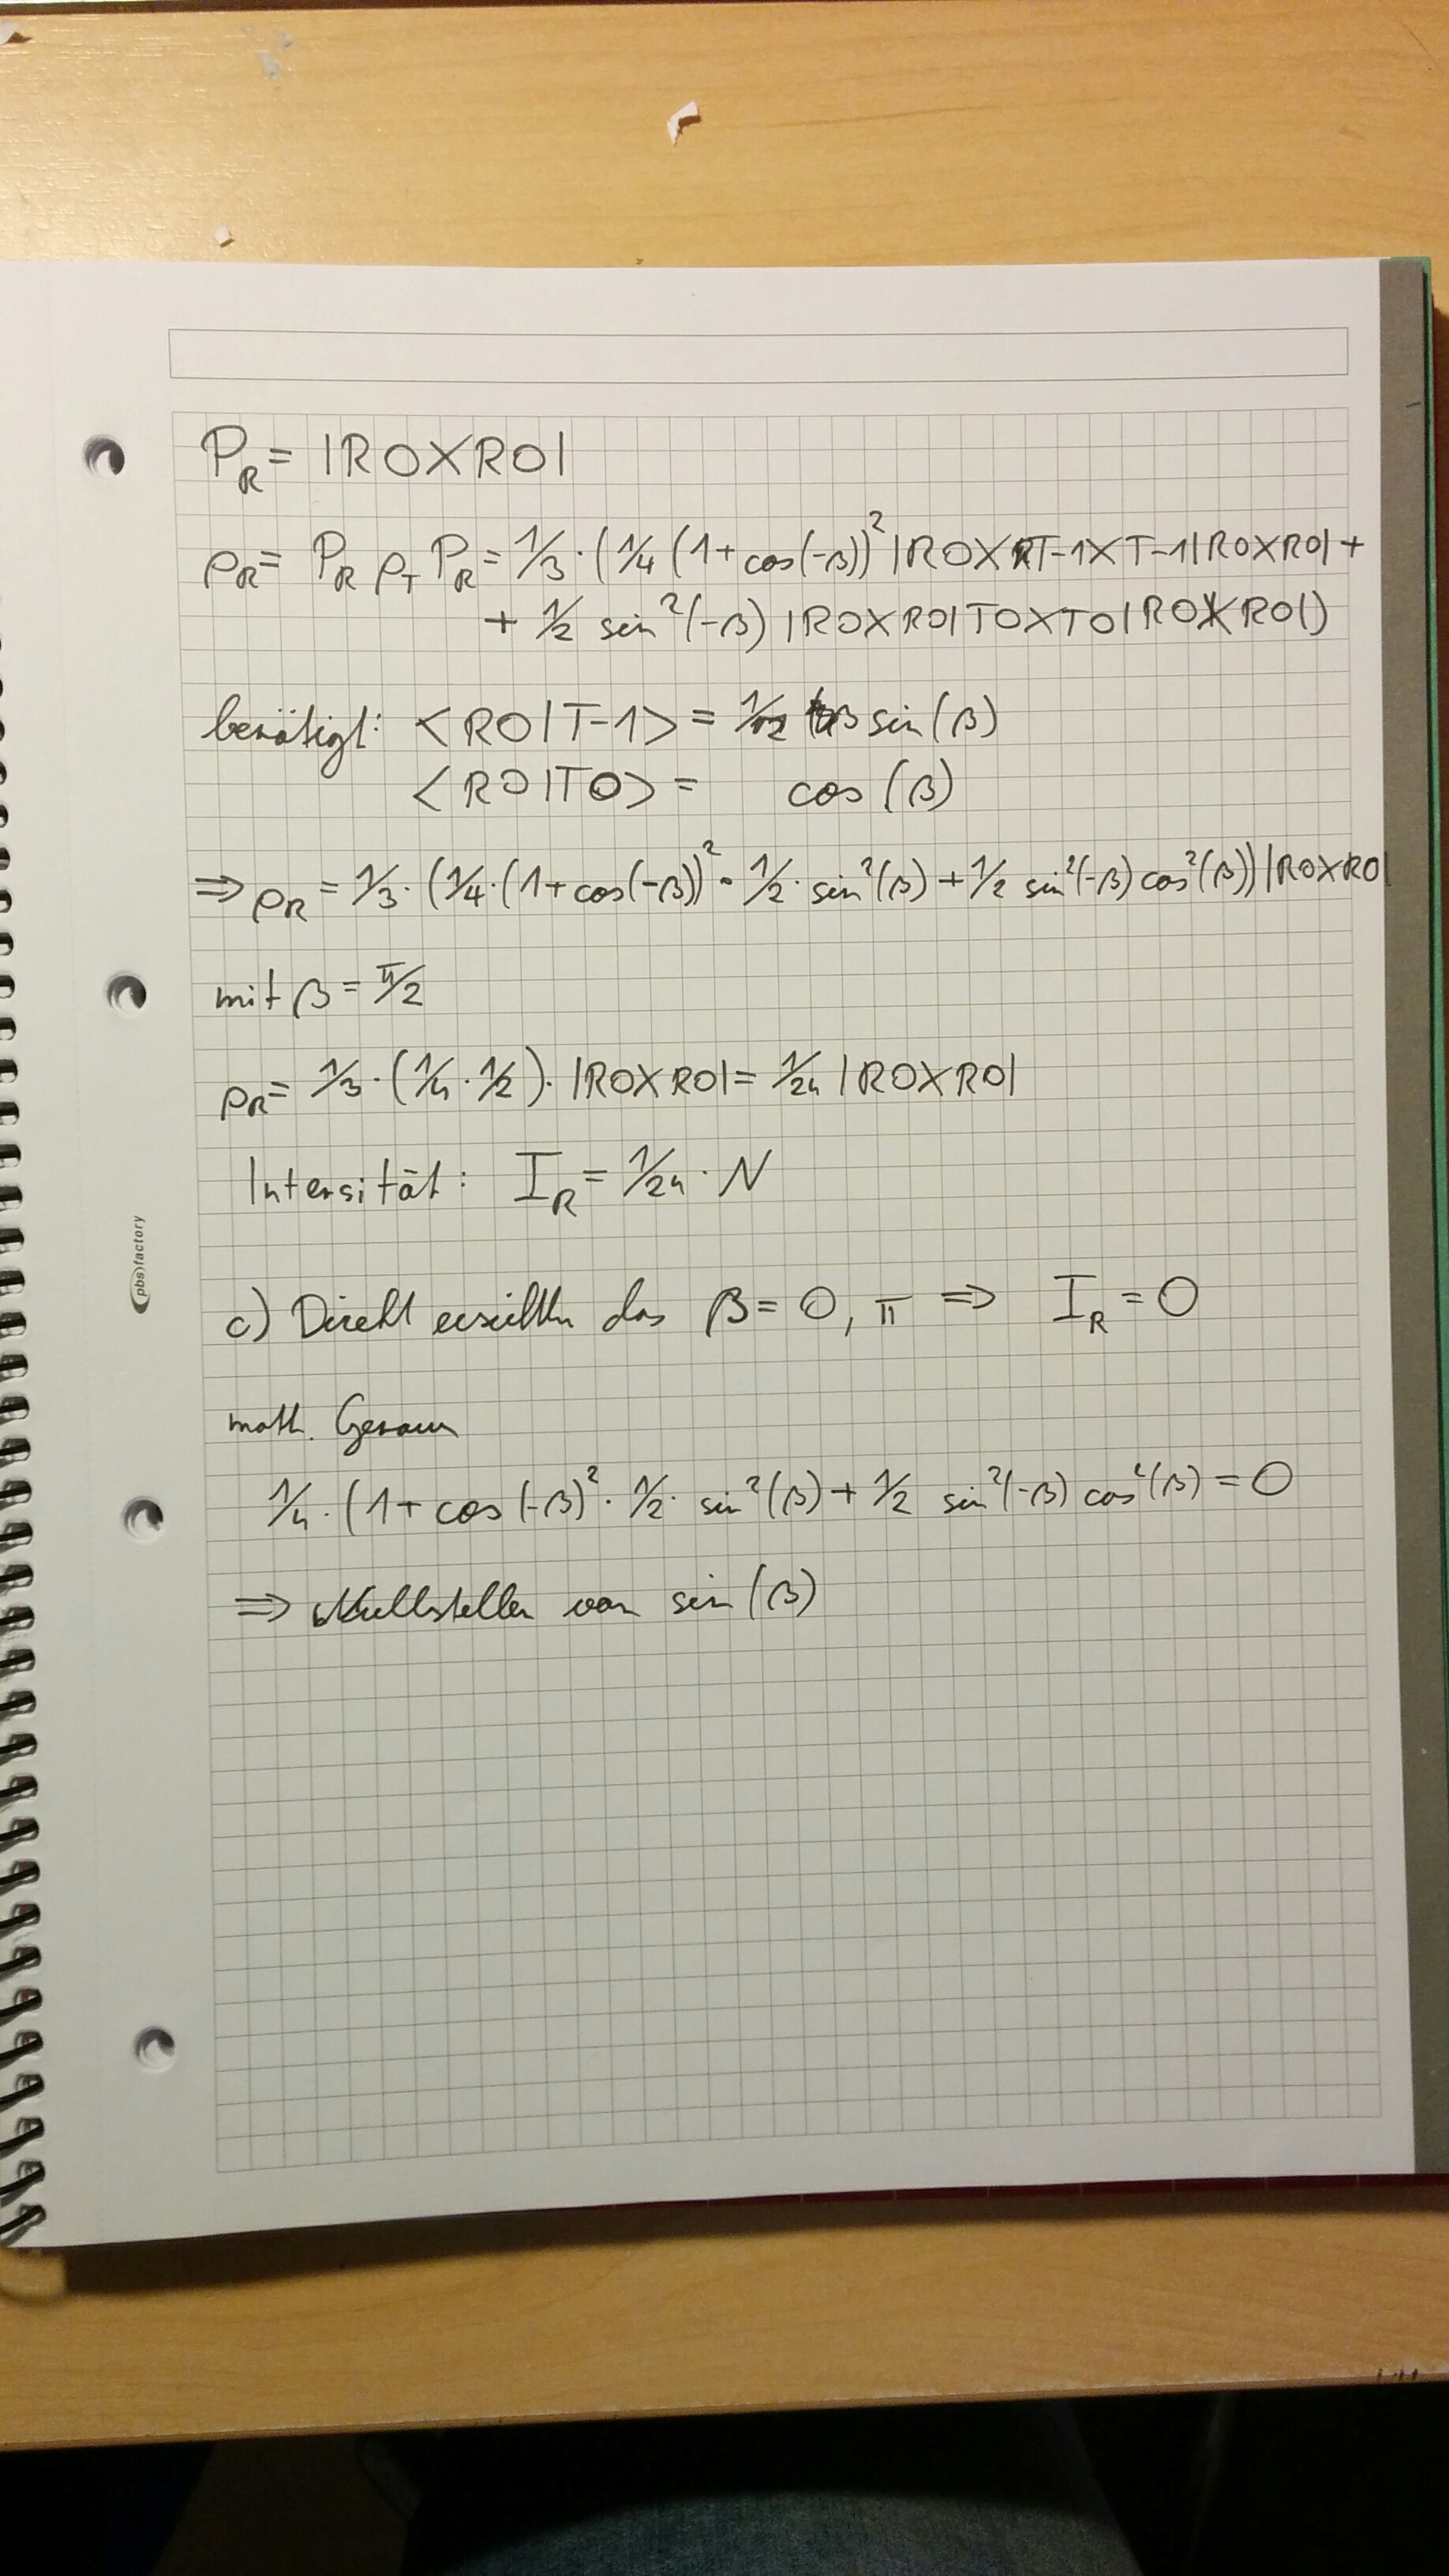 P_R = |R0><R0|
ρ_R = P_R ρ_T P_R = 1/3 · (1/4 (1 + cos(-β))² |R0><R0|T-1><T-1|R0><R0| +
+ 1/2 sin²(-β) |R0><R0|T0><T0|R0><R0|)
benötigt: <R0|T-1> = 1/√2 sin(β)
<R0|T0> = cos(β)
⇒ ρ_R = 1/3 · (1/4 · (1 + cos(-β))² · 1/2 · sin²(β) + 1/2 sin²(-β) cos²(β)) |R0><R0|
mit β = π/2
ρ_R = 1/3 · (1/4 · 1/2) · |R0><R0| = 1/24 |R0><R0|
Intensität: I_R = 1/24 · N
pbs factory
c) Direkt ersichtlich das β = 0, π ⇒ I_R = 0
math. Genau
1/4 · (1 + cos(-β)² · 1/2 · sin²(β) + 1/2 sin²(-β) cos²(β) = 0
⇒ Nullstellen von sin(β)